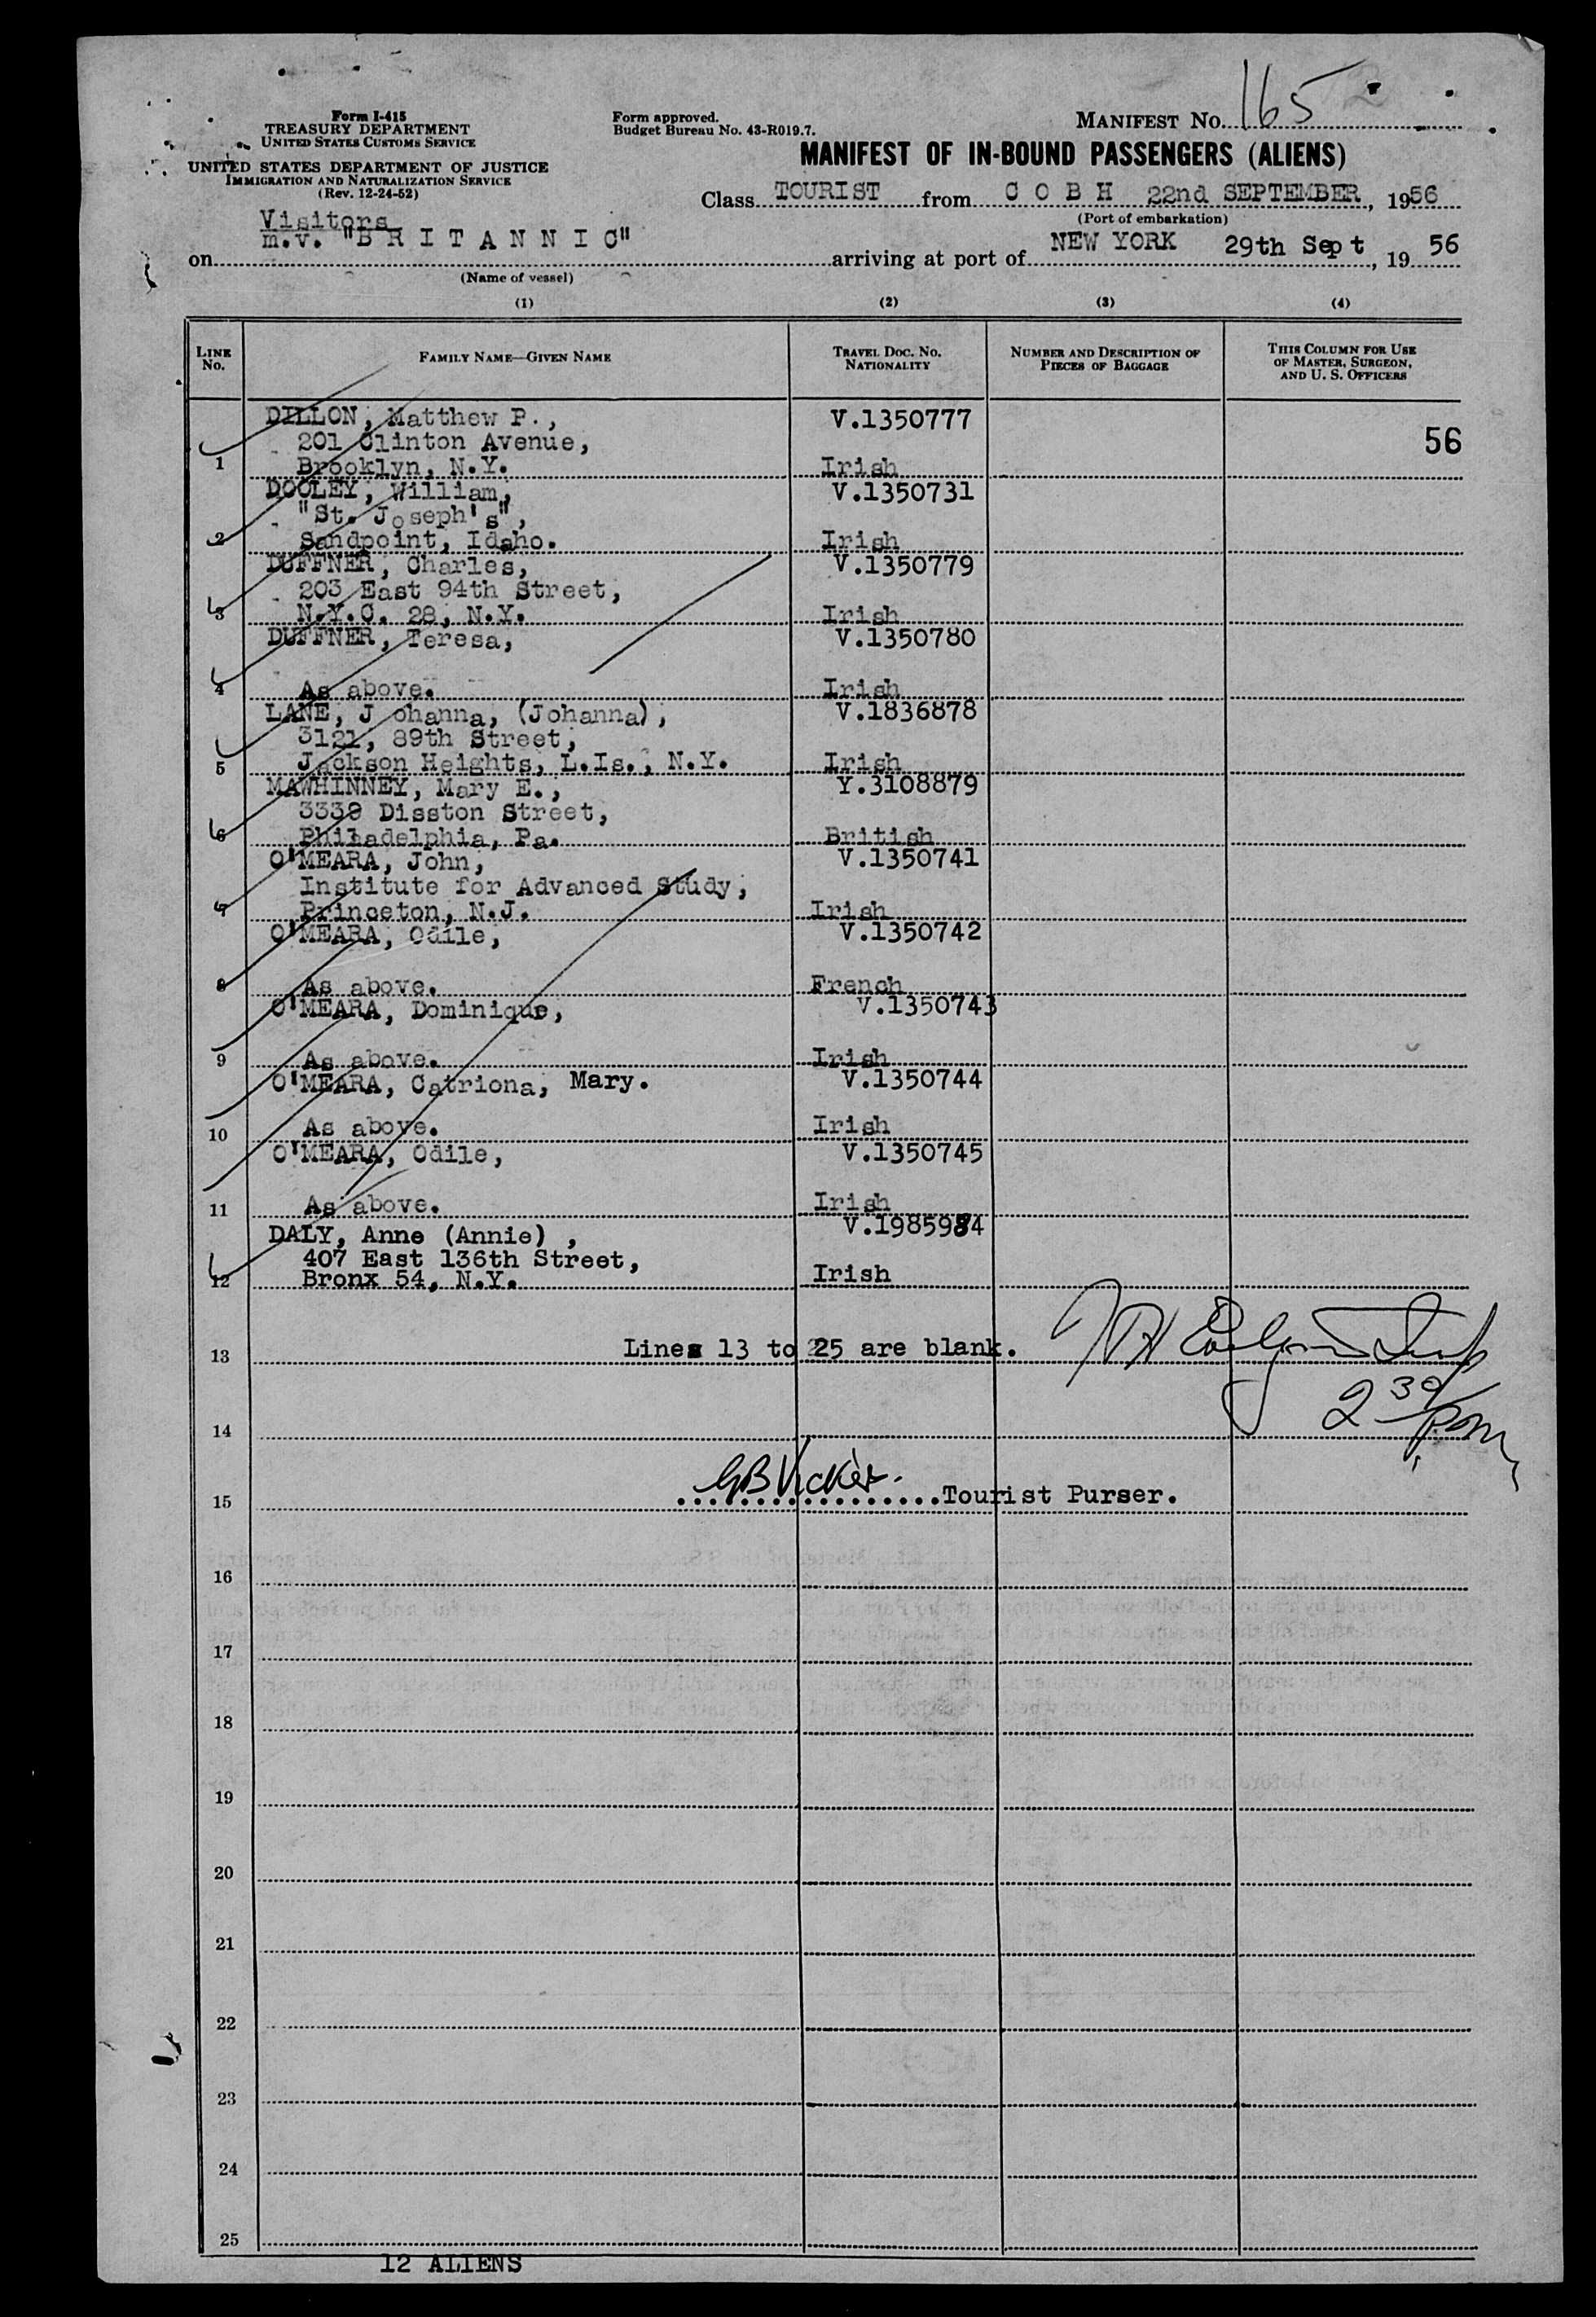 Form I-415
TREASURY DEPARTMENT
UNITED STATES CUSTOMS SERVICE
UNITED STATES DEPARTMENT OF JUSTICE
IMMIGRATION AND NATURALIZATION SERVICE
(Rev. 12-24-52)
Form approved.
Budget Bureau No. 43-R019.7.
MANIFEST NO. 165
MANIFEST OF IN-BOUND PASSENGERS (ALIENS)
Class TOURIST from C O B H 22nd SEPTEMBER, 1956
(Port of embarkation)
Visitors
on m.v. "B R I T A N N I C" arriving at port of NEW YORK 29th Sept, 19 56
(Name of vessel)
(1) (2) (3) (4)
LINE No. FAMILY NAME—GIVEN NAME TRAVEL DOC. NO. NATIONALITY NUMBER AND DESCRIPTION OF PIECES OF BAGGAGE THIS COLUMN FOR USE OF MASTER, SURGEON, AND U. S. OFFICERS
DILLON, Matthew P., V.1350777
201 Clinton Avenue, 56
1 Brooklyn, N.Y. Irish
DOOLEY, William, V.1350731
"St. Joseph's",
2 Sandpoint, Idaho. Irish
DUFFNER, Charles, V.1350779
203 East 94th Street,
3 N.Y.C. 28, N.Y. Irish
DUFFNER, Teresa, V.1350780
4 As above. Irish
LANE, J ohanna, (Johanna), V.1836878
3121, 89th Street,
5 Jackson Heights, L.Is., N.Y. Irish
MAWHINNEY, Mary E., Y.3108879
3339 Disston Street,
6 Philadelphia, Pa. British
O'MEARA, John, V.1350741
Institute for Advanced Study,
7 Princeton, N.J. Irish
O'MEARA, Odile, V.1350742
8 As above. French
O'MEARA, Dominique, V.1350743
9 As above. Irish
O'MEARA, Catriona, Mary. V.1350744
10 As above. Irish
O'MEARA, Odile, V.1350745
11 As above. Irish
DALY, Anne (Annie) , V.1985984
407 East 136th Street,
12 Bronx 54, N.Y. Irish
13 Lines 13 to 25 are blank.
2 30 pm
14
GB Vicker.
15 Tourist Purser.
16
17
18
19
20
21
22
23
24
25
12 ALIENS